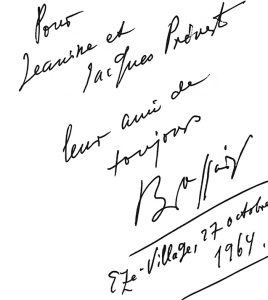 Pour
Jeanine et
Jacques Prévert
leur ami de
toujours
Brassaï
Eze-Village, 27 octobre
1964.